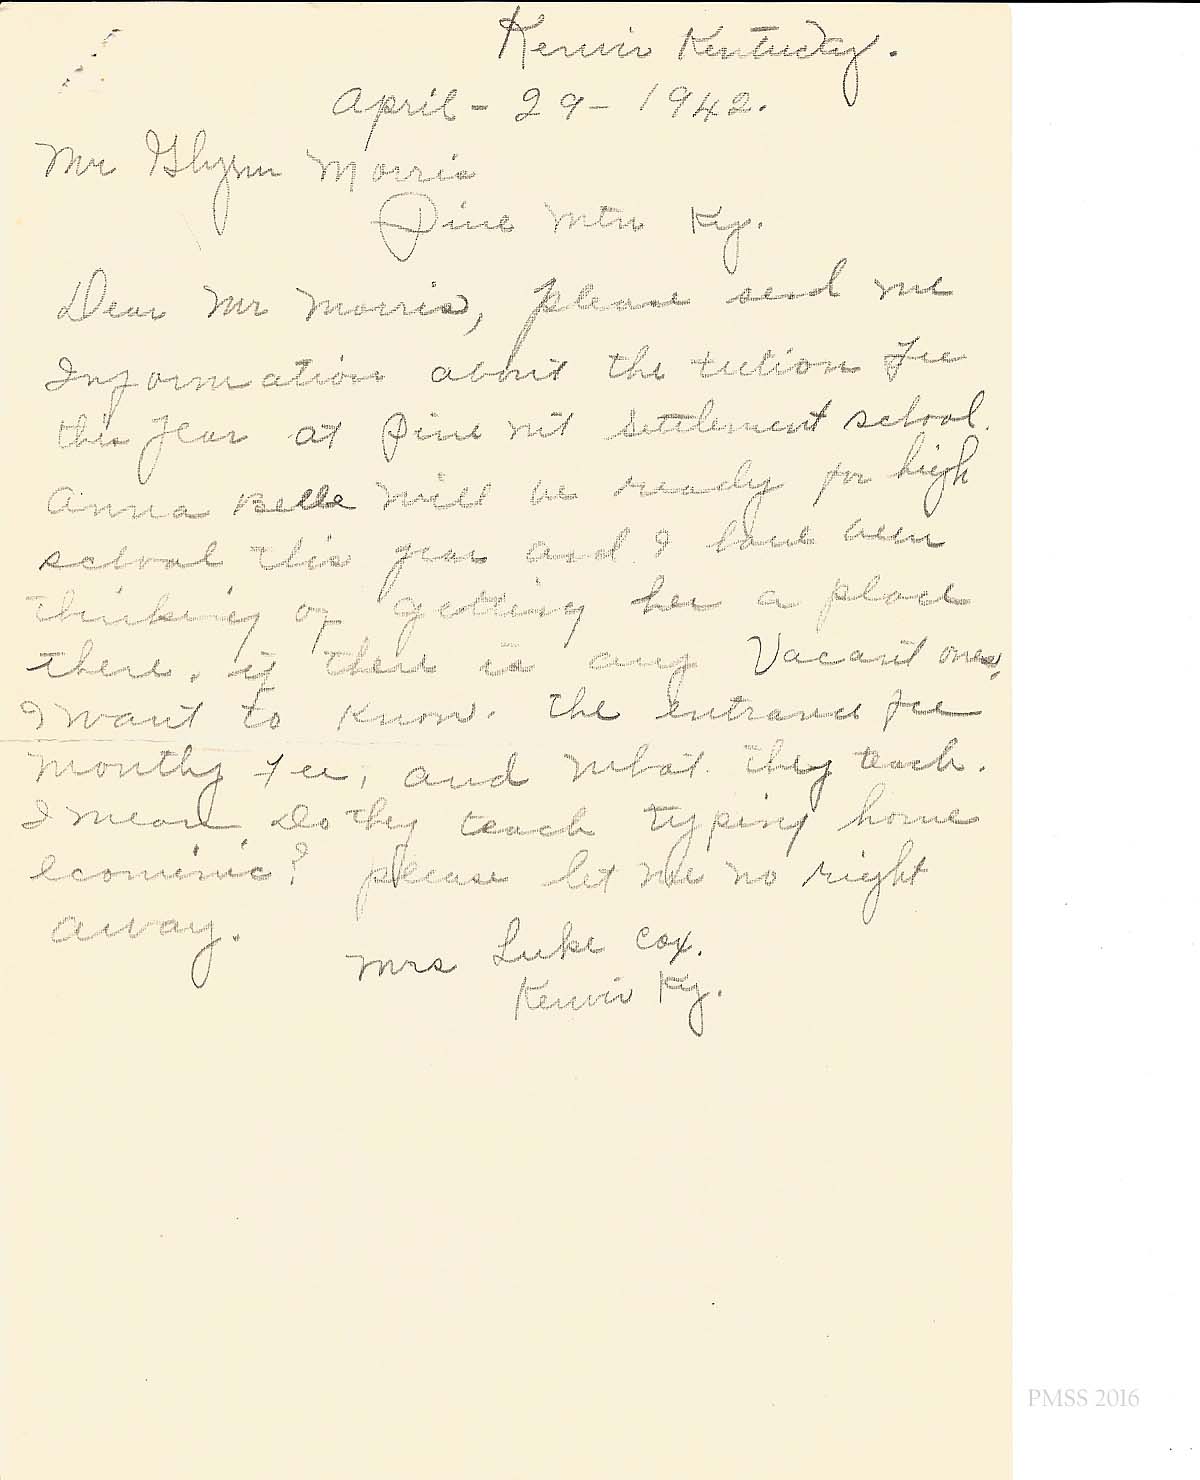 Kerwin Kentucky.
April - 29 - 1942.
Mr Glynn Morris
Pine Mtn Ky.
Dear Mr Morris, please send me
Information about the tution fee
this year at Pine mt settlement school.
Anna Belle will be ready for high
school this year and I have been
thinking of getting her a place
there. if there is any Vacant ones,
I want to know. the entrance fee
monthy fee, and what they teach.
I mean do they teach typing home
ecominic? please let me no right
away.
Mrs Luke Cox.
Kerwin Ky.
PMSS 2016